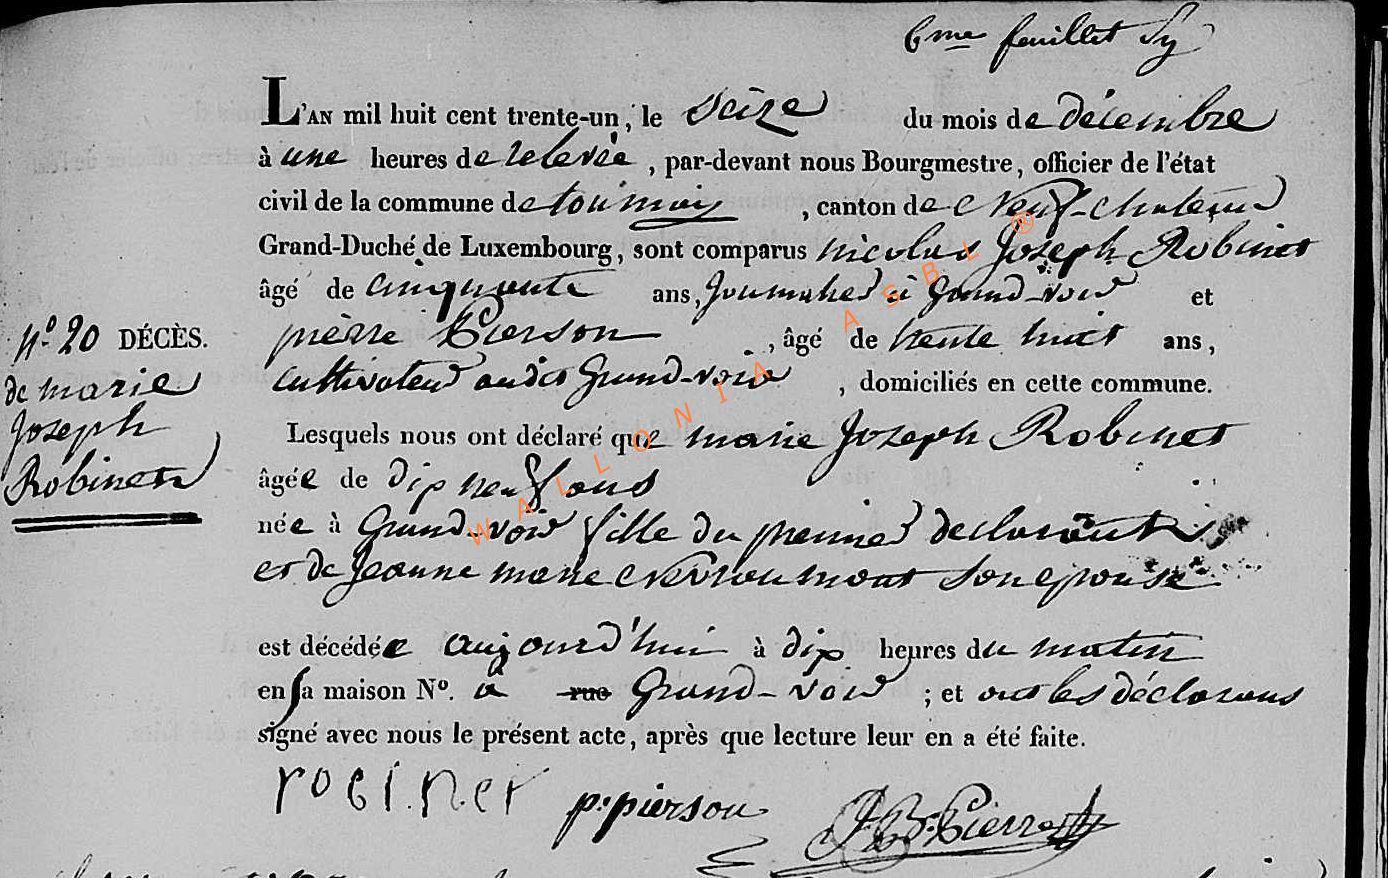 6me feuillet Sy
L'AN mil huit cent trente-un, le seize du mois de décembre
à une heures de relevée, par-devant nous Bourgmestre, officier de l'état
civil de la commune de tournay, canton de Neuf-chateau
Grand-Duché de Luxembourg, sont comparus nicolas Joseph Robinet
âgé de cinquante ans, Journalier à Grand-voir et
pièrre Pierson, âgé de trente huit ans,
cultivateur audit Grand-voir, domiciliés en cette commune.
Lesquels nous ont déclaré que marie Joseph Robinet
âgée de dix neuf ans
née à Grand-voir fille du premier declarant
et de Jeanne marie son epouse
est décédée aujourd'hui à dix heures du matin
en sa maison N°. à rue Grand-voir ; et ont les déclarans
signé avec nous le présent acte, après que lecture leur en a été faite.
n° 20 DÉCÈS.
de marie
Joseph
Robinet
robinet p: pierson J. B. Pierret
WALLONIA ASBL ®